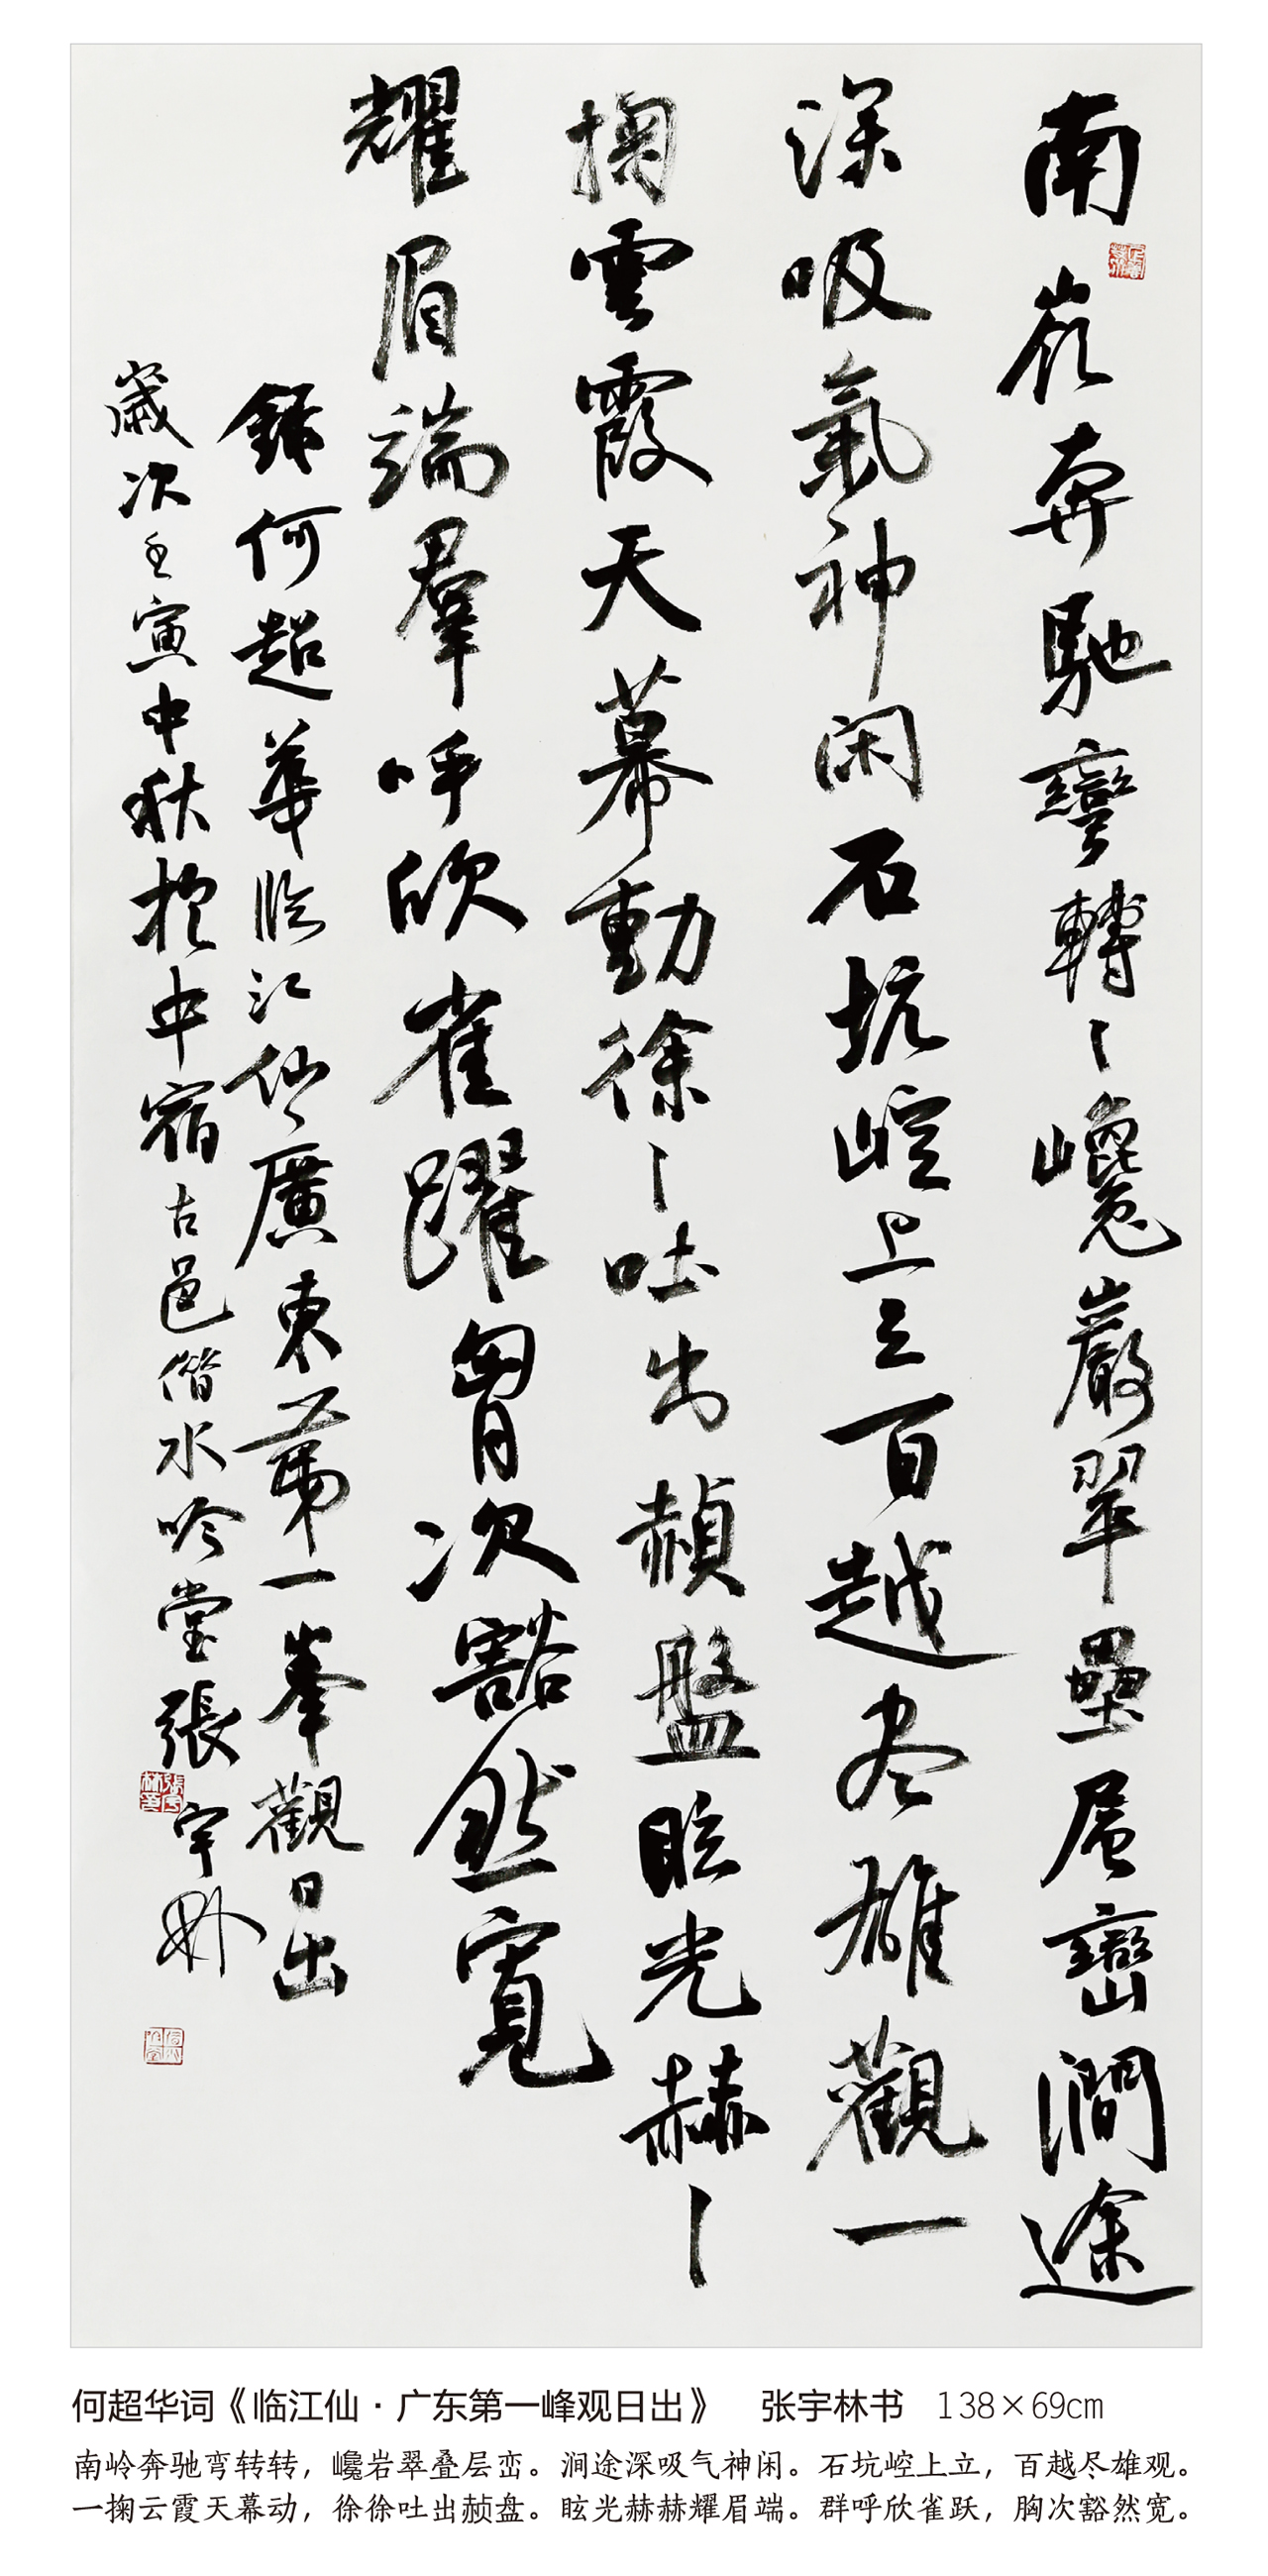 南嶺奔馳彎轉〻巉巖翠壘层巒澗途
深吸氣神闲石坑崆上立百越尽雄觀一
掬雲霞天幕動徐〻吐出赪盤眩光赫〻
耀眉端羣呼欣雀躍胷次豁然寬
錄何超華临江仙廣東第一峯觀日出
歲次壬寅中秋於中宿古邑偕水吟堂張宇林
何超华词《临江仙·广东第一峰观日出》 张宇林书 138×69cm
南岭奔驰弯转转，巉岩翠叠层峦。涧途深吸气神闲。石坑崆上立，百越尽雄观。
一掬云霞天幕动，徐徐吐出赪盘。眩光赫赫耀眉端。群呼欣雀跃，胸次豁然宽。